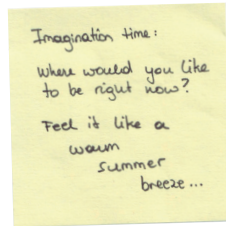 Imagination time:
Where would you like
to be right now?
Feel it like a
warm
summer
breeze...